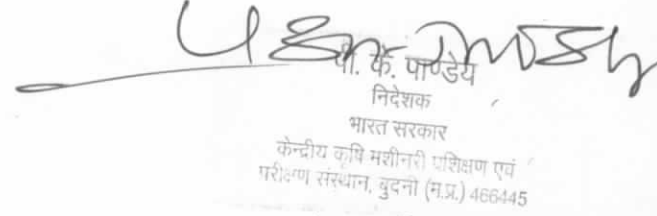 पी. के. पाण्डेय
निदेशक
भारत सरकार
केन्द्रीय कृषि मशीनरी प्रशिक्षण एवं
परीक्षण संस्थान, बुदनी (म.प्र.) 466445